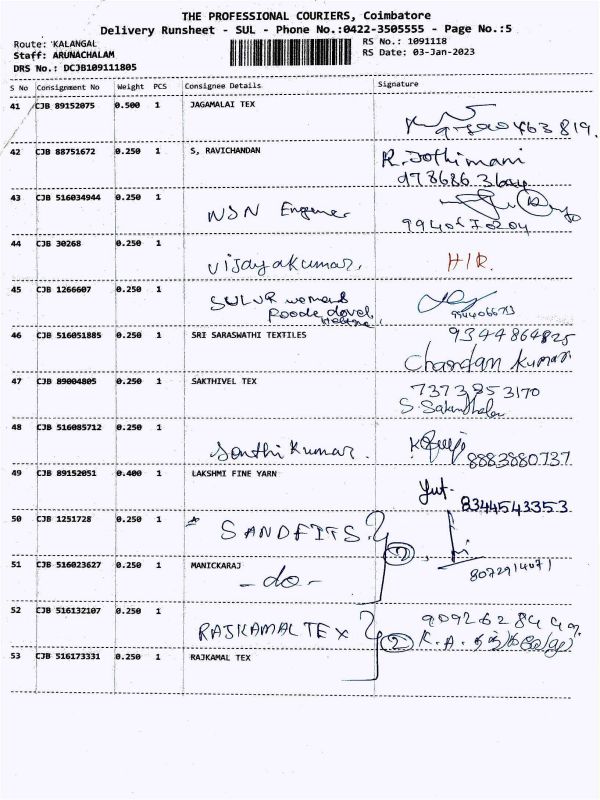 THE PROFESSIONAL COURIERS, Coimbatore
Delivery Runsheet - SUL - Phone No.:0422-3505555 - Page No.:5
Route: KALANGAL RS No.: 1091118
Staff: ARUNACHALAM RS Date: 03-Jan-2023
DRS No.: DCJB109111805
S No Consignment No Weight PCS Consignee Details Signature
41 CJB 89152075 0.500 1 JAGAMALAI TEX
42 CJB 88751672 0.250 1 S, RAVICHANDAN R. Jothimani
43 CJB 516034944 0.250 1 NSN
9940670204
44 CJB 30268 0.250 1 Vijayakumar. HIR.
45 CJB 1266607 0.250 1 SULUR
46 CJB 516051885 0.250 1 SRI SARASWATHI TEXTILES 9344864825
Chandan Kumar
47 CJB 89004805 0.250 1 SAKTHIVEL TEX 7373853170
48 CJB 516085712 0.250 1 Santhi Kumar. 8883880737
49 CJB 89152051 0.400 1 LAKSHMI FINE YARN
8344543353
50 CJB 1251728 0.250 1 SANDFITS
51 CJB 516023627 0.250 1 MANICKARAJ 8072914071
-do-
52 CJB 516132107 0.250 1 RAJKAMAL TEX 2
53 CJB 516173331 0.250 1 RAJKAMAL TEX